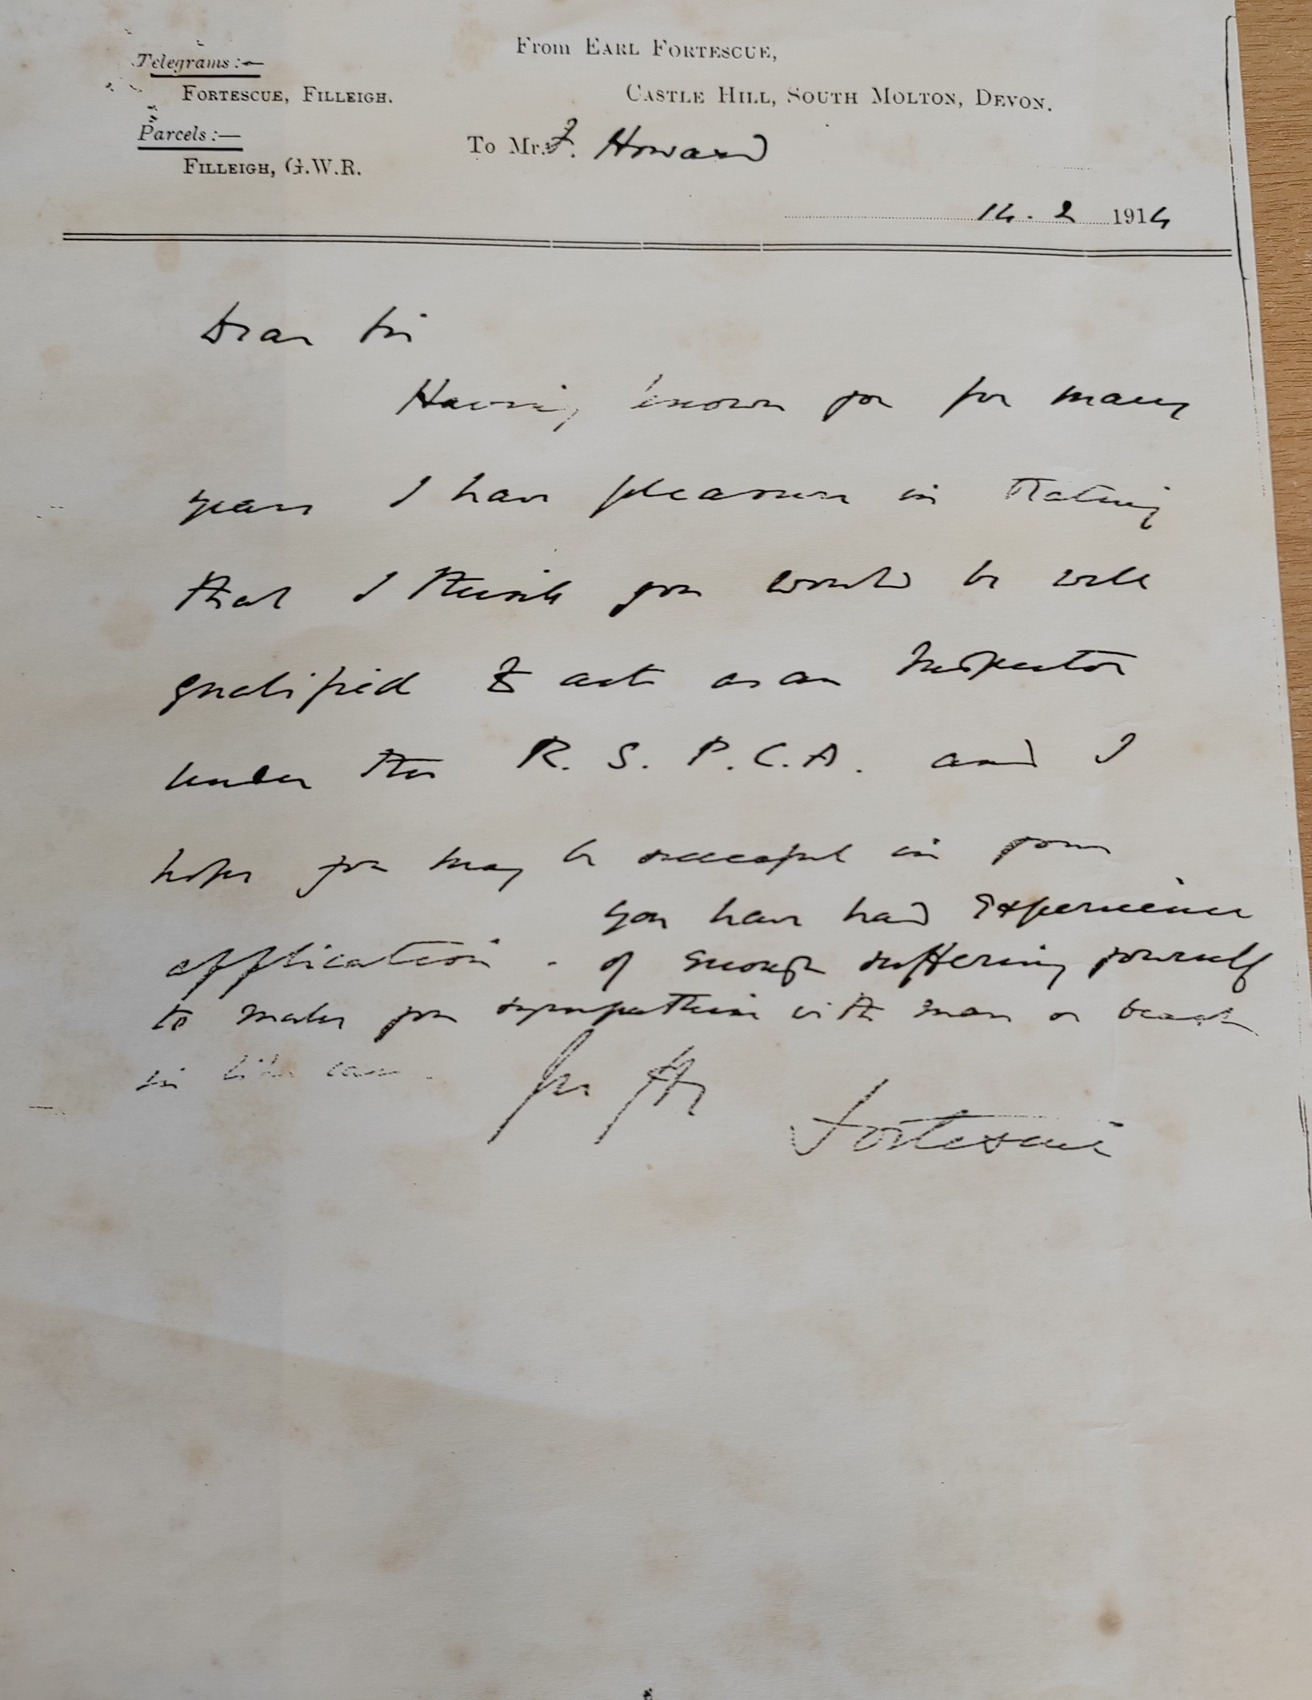 Telegrams :—
FORTESCUE, FILLEIGH.
Parcels :—
FILLEIGH, G.W.R.
From EARL FORTESCUE,
CASTLE HILL, SOUTH MOLTON, DEVON.
To Mr. F. Howard
14. 2 1914
Dear Sir
Having known you for many
years I have pleasure in stating
that I think you would be well
qualified to act as an Inspector
under the R. S. P. C. A. and I
hope you may be successful in your
application. you have had experience
of enough suffering yourself
to make you sympathise with man or beast
in like case.
Fortescue